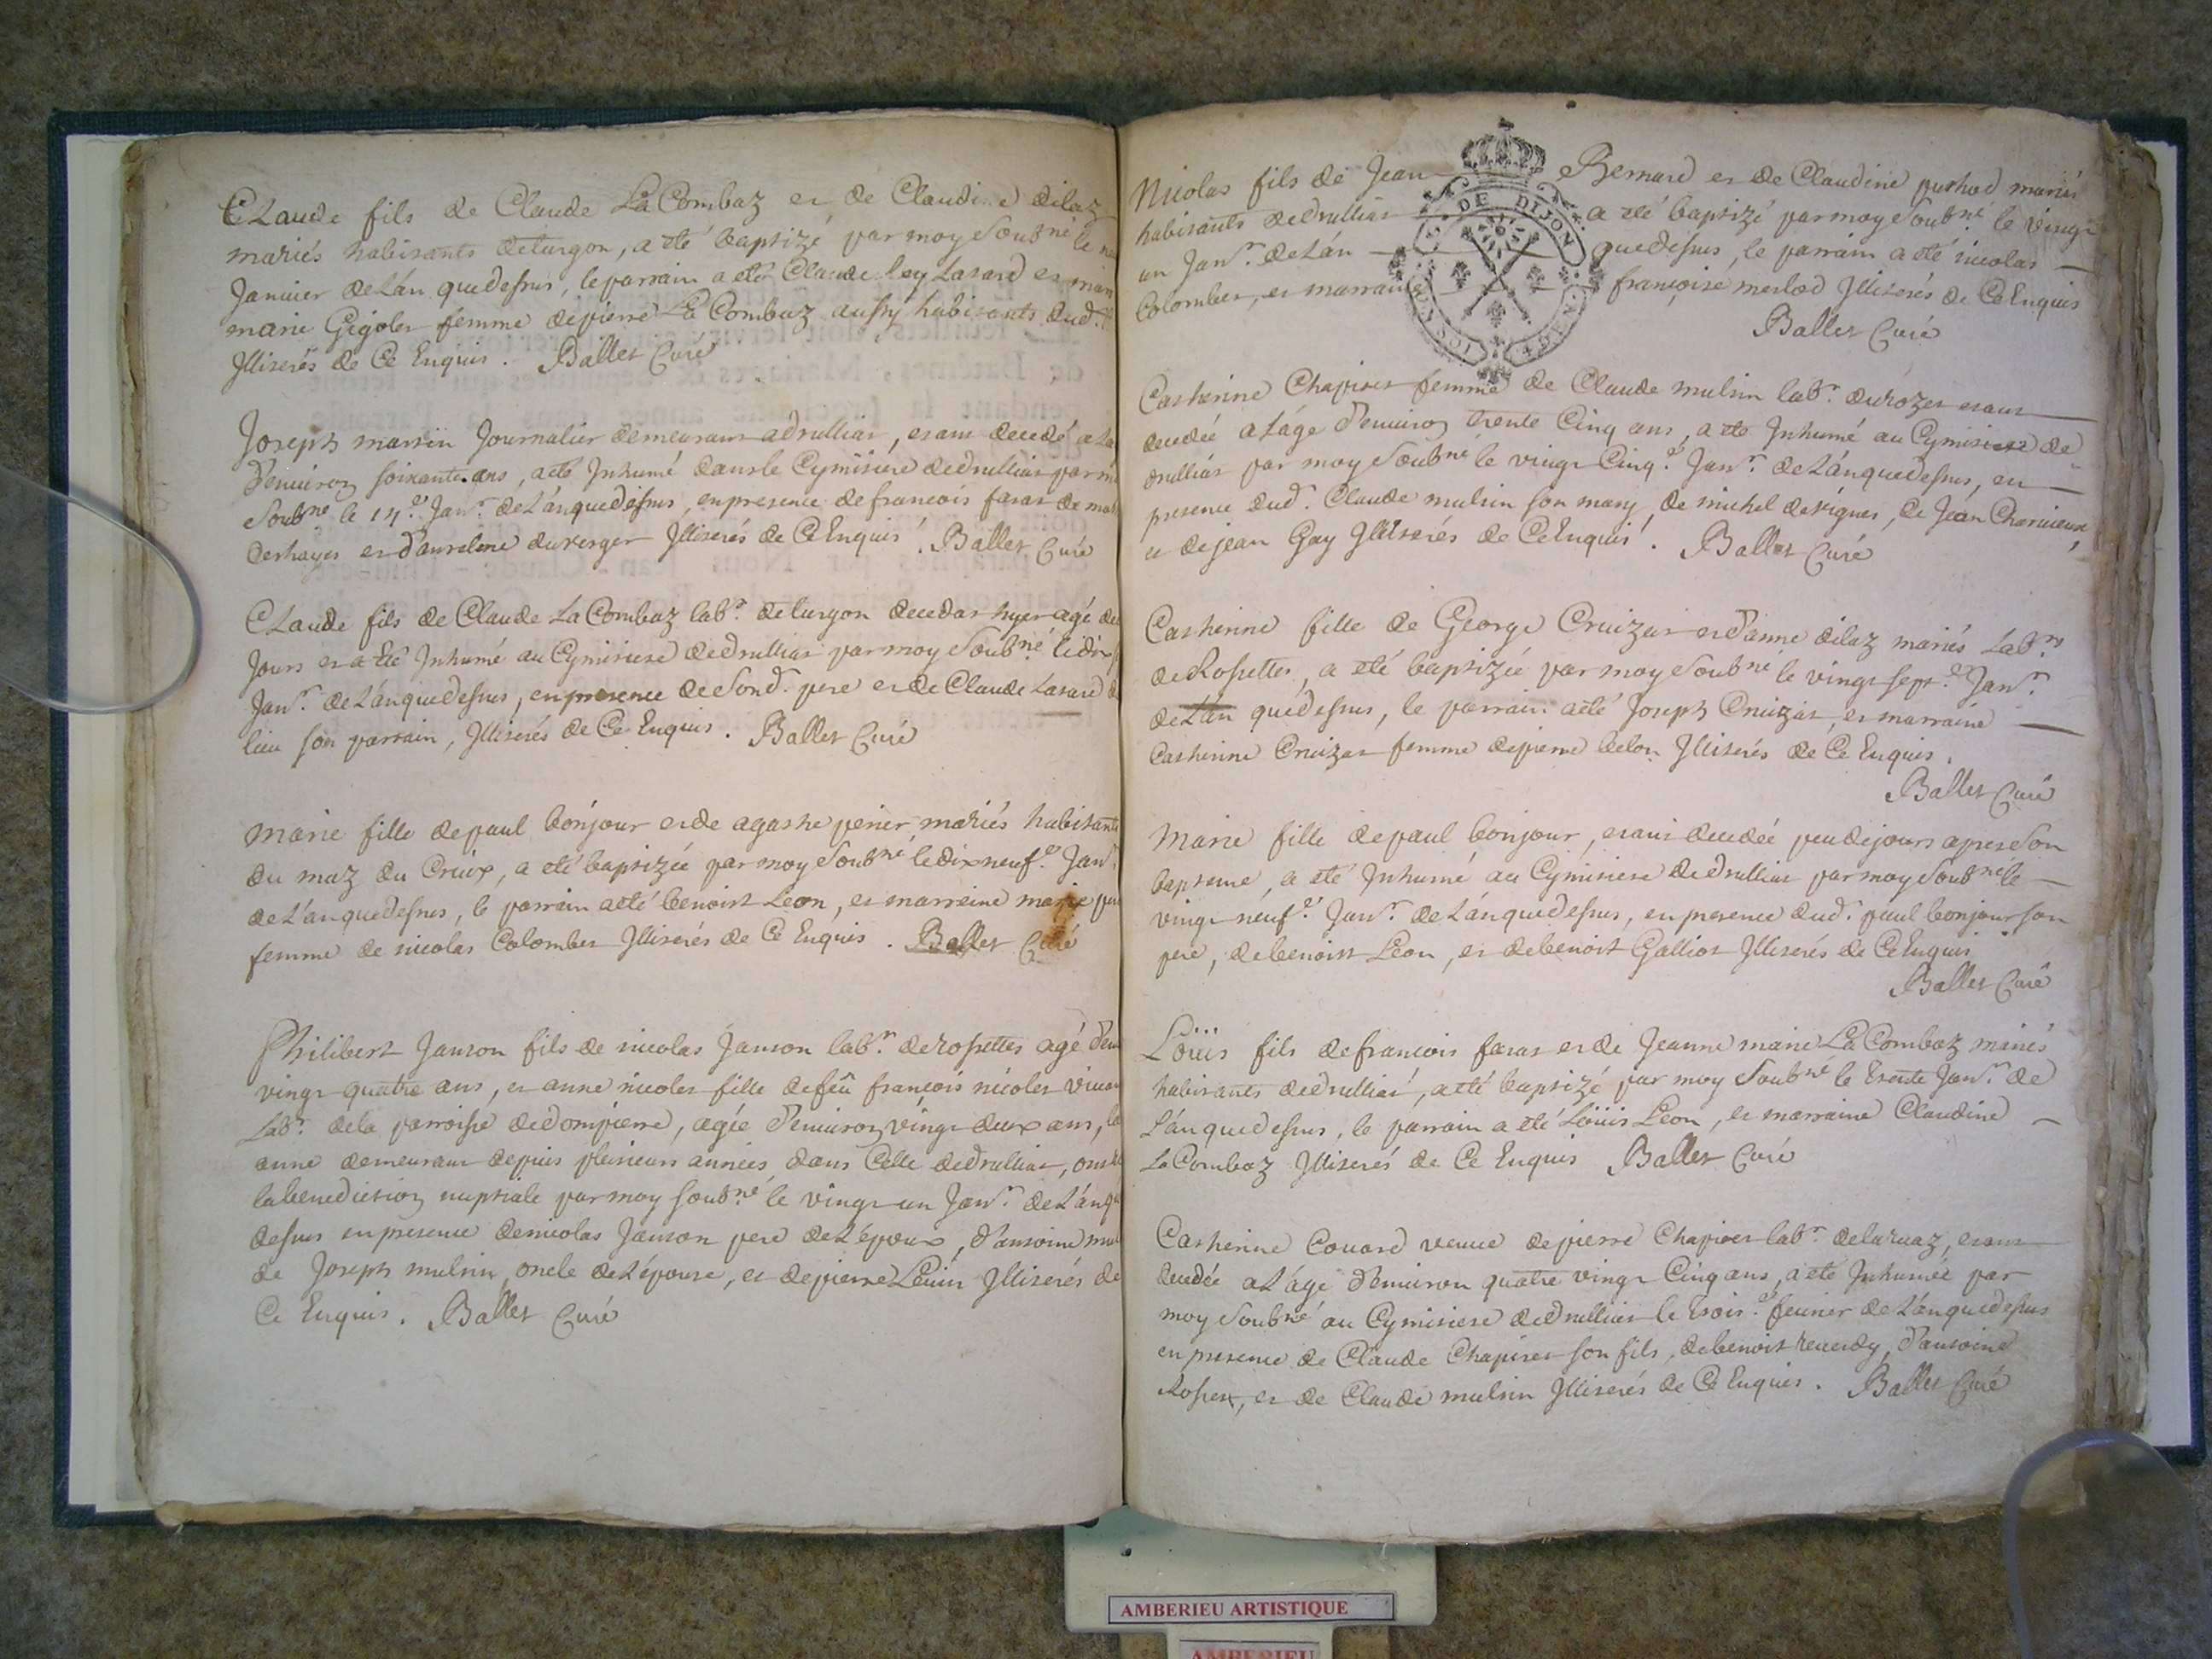 Claude fils de Claude La Combaz et de Claudine dilaz
mariés habitants de turgon, a eté baptizé par moy Soubné le
Janvier de L'an que dessus, le parrain a eté Claude Ley Lazard et
marie Gigolet femme de pierre La Combaz aussy habitants dud.
Illiterés de Ce Enquis. Ballet Curé
Joseph martin Journalier demeurant a druillias, etant decedé a La
d'environ soixante ans, a eté Inhumé dans le Cymitiere de druilliat par m
Soubné le 14e Janr. de L'an que dessus, en presence de francois faras de
deshayes et d'anselme duverger Illiterés de Ce Enquis. Ballet Curé
Claude fils de Claude La Combaz labr. de turgon decedat hyer agé de
Jours et a Eté Inhumé au Cymitiere de druilliat par moy Soubné le dix
Janr. de L'an que dessus, en presence de Sond. pere et de Claude Lazard
lieu son parrain, Illiterés de Ce Enquis. Ballet Curé
Marie fille de paul bonjour et de agathe perier mariés habitants
du maz du Creux, a eté baptizée par moy Soubné le dix neufe Janr.
de L'an que dessus, le parrain a eté benoist Leon, et marreine marie
femme de nicolas Colombet Illiterés de Ce Enquis. Ballet Curé
Philibert Janton fils de nicolas Janton labr. de rossettes agé d'en
vingt quatre ans, et anne nicolet fille de feû françois nicolet vivan
Labr. de la parroisse de dompierre, agée d'environ vingt deux ans, la
anne demeurant depuis plusieurs années dans Celle de druilliat, ont
la benediction nuptiale par moy soubné le vingt un Janr. de L'an q
dessus en presence de nicolas Janton pere de L'époux, d'antoine
de Joseph mulsin oncle de L'épouse, et de pierre Levin Illiterés de
Ce Enquis. Ballet Curé
Nicolas fils de Jean Bernard et de Claudine puthod mariés
habitants de druilliat a eté baptizé par moy Soubné le vingt
un Janr. de L'an que dessus, le parrain a eté nicolas
Colombet, et marraine françoise merlod Illiterés de Ce Enquis
Ballet Curé
DE DIJON
Catherine Chapitet femme de Claude mulsin labr. du rozet etant
decedée a L'âge d'environ trente Cinq ans, a eté Inhumé au Cymitiere de
druilliat par moy Soubné le vingt Cinqe Janr. de L'an que dessus, en
presence dud. Claude mulsin son mary, de michel de vignes, de Jean Charvieux,
et de jean Gay Illiterés de Ce Enquis. Ballet Curé
Catherine fille de George Cruizat et d'anne dilaz mariés Labrs
de Rossettes, a eté baptizée par moy Soubné le vingt septe Janr.
de L'an que dessus, le parrain a eté Joseph Cruizat, et marraine
Catherine Cruizat femme de pierre belon Illiterés de Ce Enquis.
Ballet Curé
Marie fille de paul bonjour, etant decedée peu de jours apres Son
bapteme, a eté Inhumé au Cymitiere de druilliat par moy Soubné le
vingt neufe Janr. de L'an que dessus, en presence dud. paul bonjour son
pere, de benoist Leon, et de benoit Galliot Illiterés de Ce Enquis
Ballet Curé
Loüis fils de francois faras et de Jeanne marie La Combaz mariés
habitants de druilliat, a eté baptizé par moy Soubné le trente Janr. de
L'an que dessus, le parrain a eté Loüis Leon, et marraine Claudine
La Combaz Illiterés de Ce Enquis Ballet Curé
Catherine Couard veuve de pierre Chapitet labr. de la ruaz, etant
decedée a L'âge d'environ quatre vingt Cinq ans, a eté Inhumée par
moy Soubné au Cymitiere de druilliat le troise fevrier de L'an que dessus
en presence de Claude Chapitet son fils, de benoit reverdy, d'antoine
Rosset, et de Claude mulsin Illiterés de Ce Enquis. Ballet Curé
AMBERIEU ARTISTIQUE
AMBERIEU